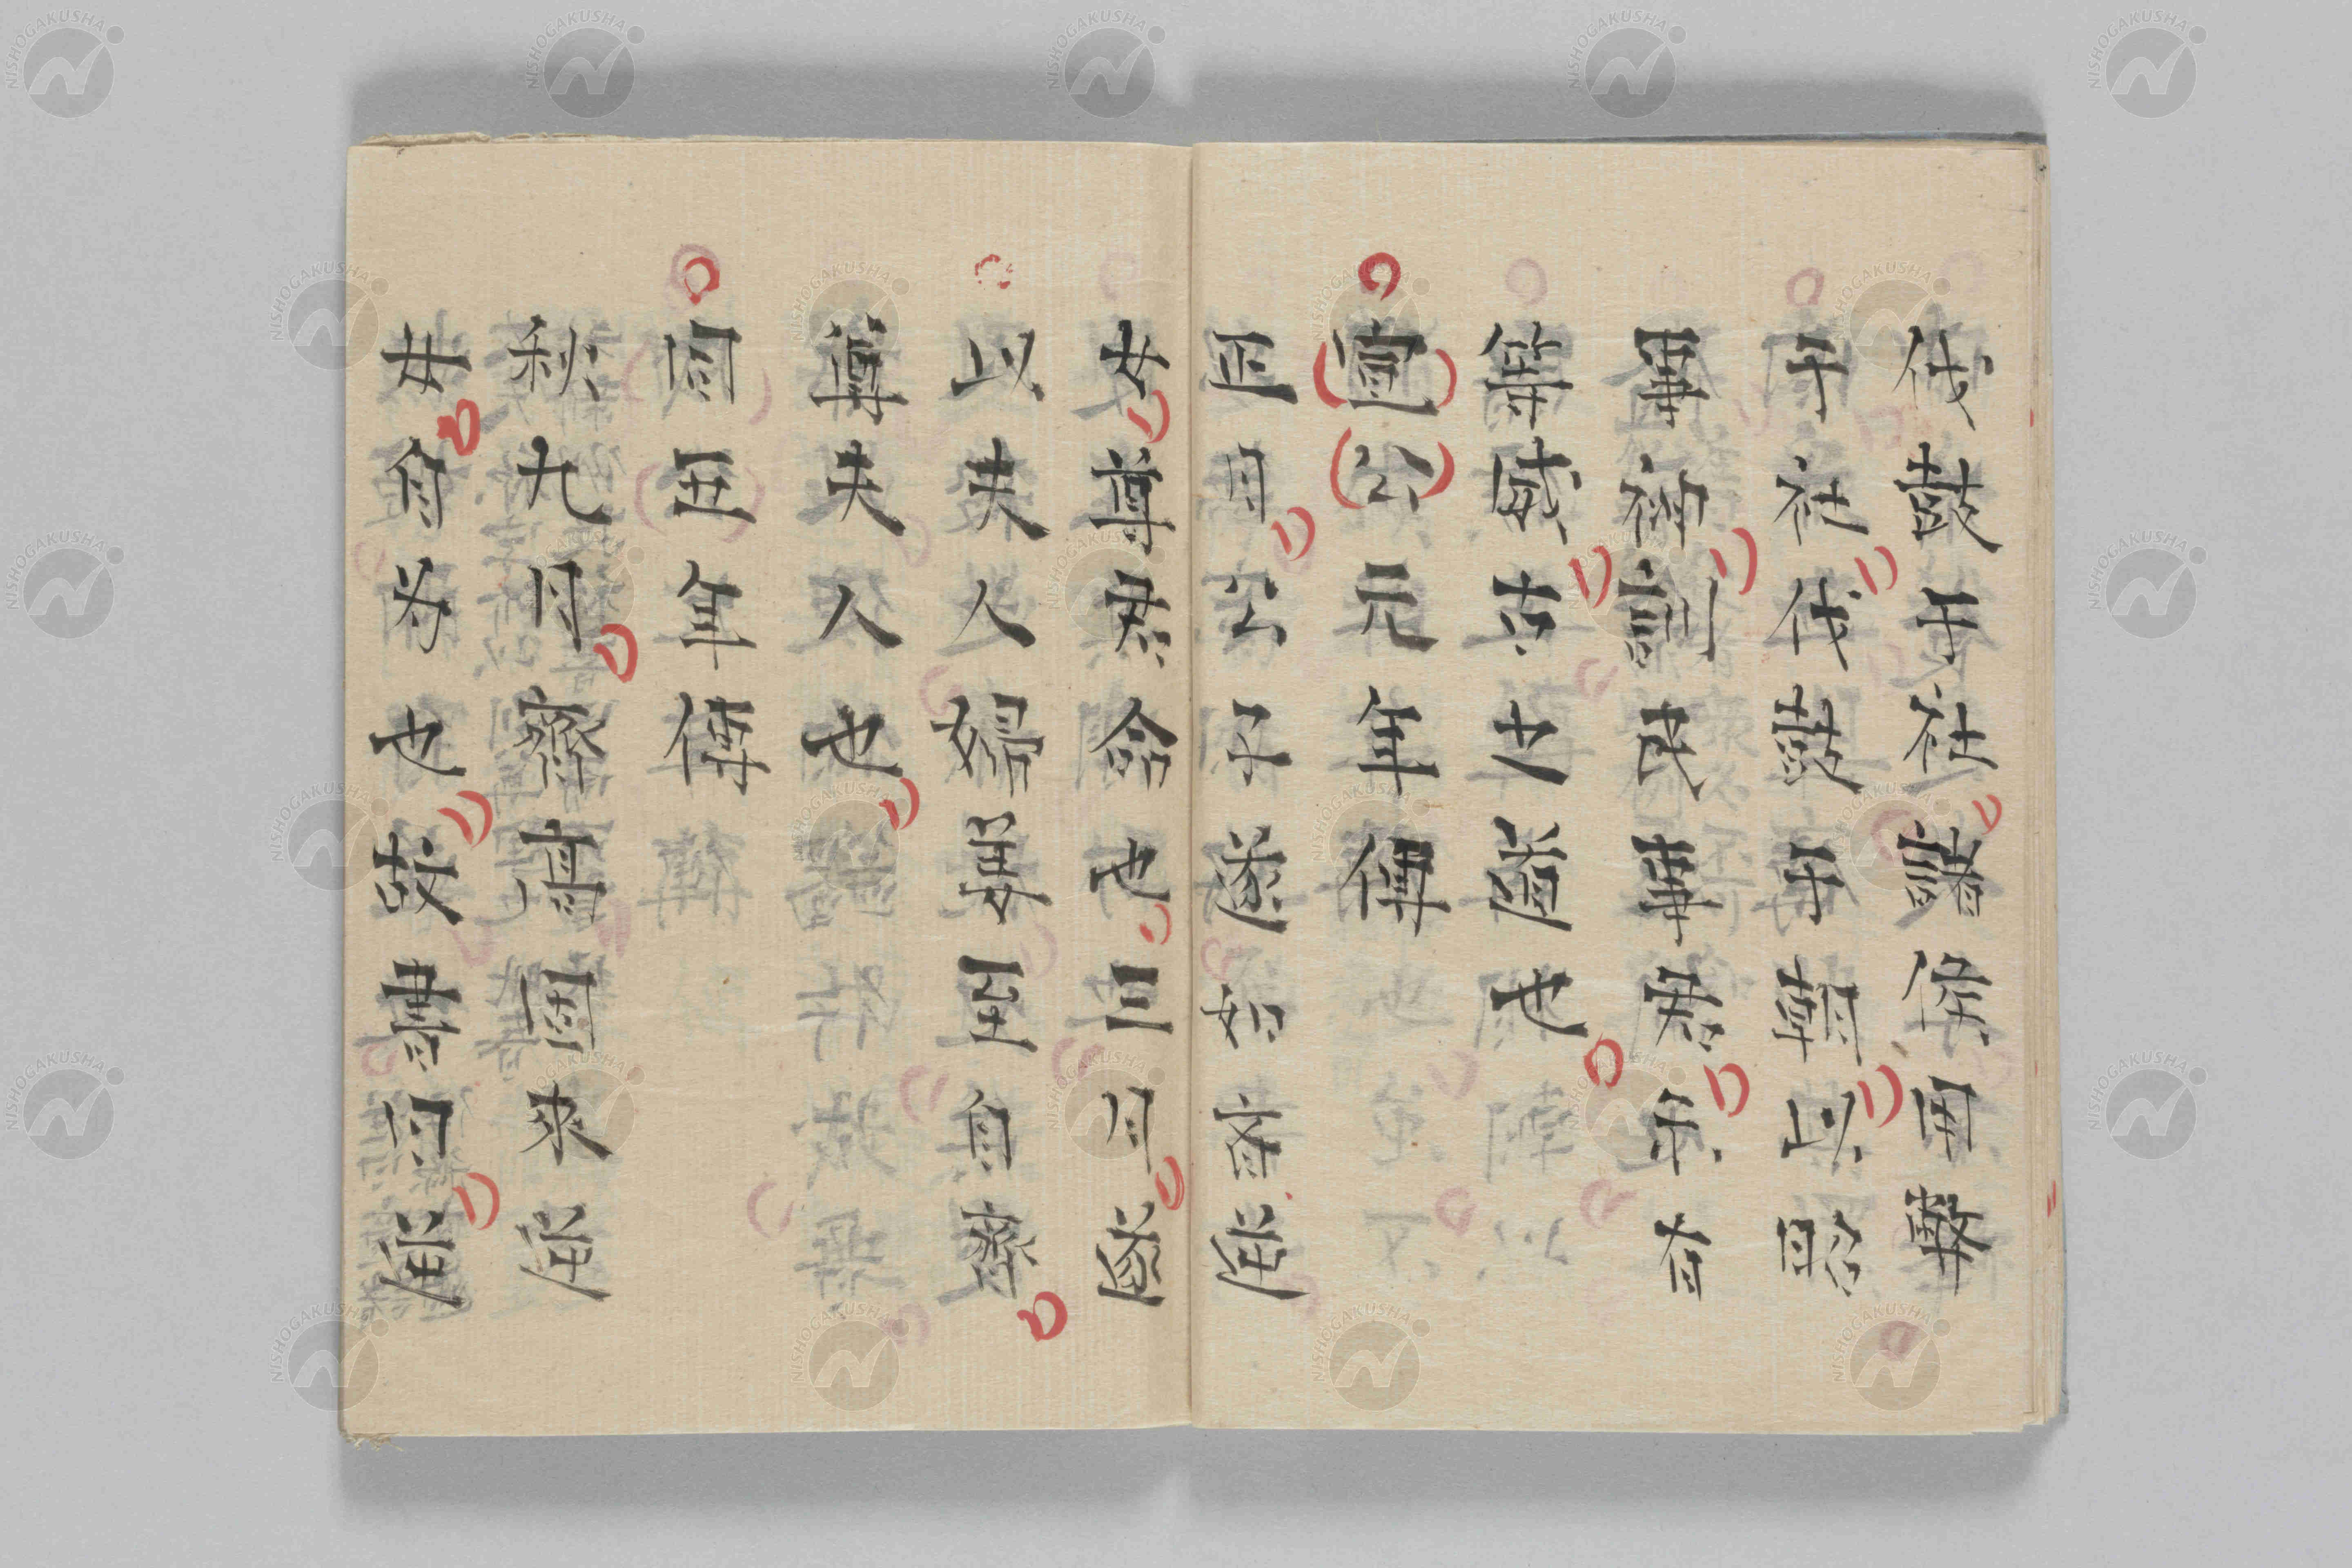 伐鼓于社諸侯用幣
于社伐鼓于朝以昭
事神訓民事君示有
等威古之道也
宣公元年傳
正月公子遂如齊逆
女尊君命也三月遂
以夫人婦姜至自齊
尊夫人也
同五年傳
秋九月齊高固來逆
女自為也故書曰逆
NISHOGAKUSHA